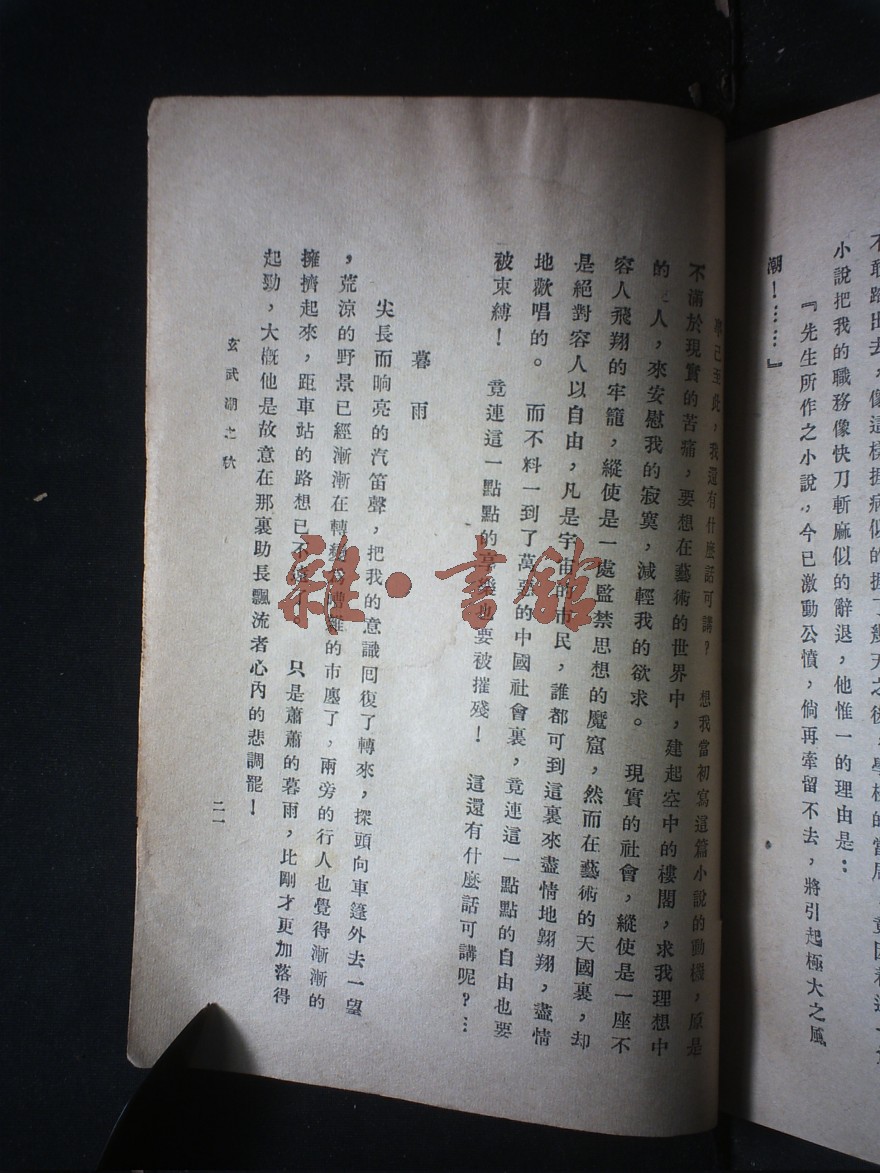 小說把我的職務像快刀斬麻似的辭退，他惟一的理由是：
『先生所作之小說，今已激動公憤，倘再牽留不去，將引起極大之風
潮！……』
已至此，我還有什麼話可講？　想我當初寫這篇小說的動機，原是
不滿於現實的苦痛，要想在藝術的世界中，建起空中的樓閣，求我理想中
的人，來安慰我的寂寞，減輕我的欲求。　現實的社會，縱使是一座不
容人飛翔的牢籠，縱使是一處監禁思想的魔窟，然而在藝術的天國裏，却
是絕對容人以自由，凡是宇宙的市民，誰都可到這裏來盡情地翱翔，盡情
地歡唱的。　而不料一到了萬惡的中國社會裏，竟連這一點點的自由也要
被束縛！　竟連這一點點的享樂也要被摧殘！　這還有什麼話可講呢？…
暮雨
尖長而响亮的汽笛聲，把我的意識囘復了轉來，探頭向車篷外去一望
，荒涼的野景已經漸漸在轉變為嘈雜的市廛了，兩旁的行人也覺得漸漸的
擁擠起來，距車站的路想已不遠了。　只是蕭蕭的暮雨，比剛才更加落得
起勁，大概他是故意在那裏助長飄流者心內的悲調罷！
玄武湖之秋
二一
雜·書館